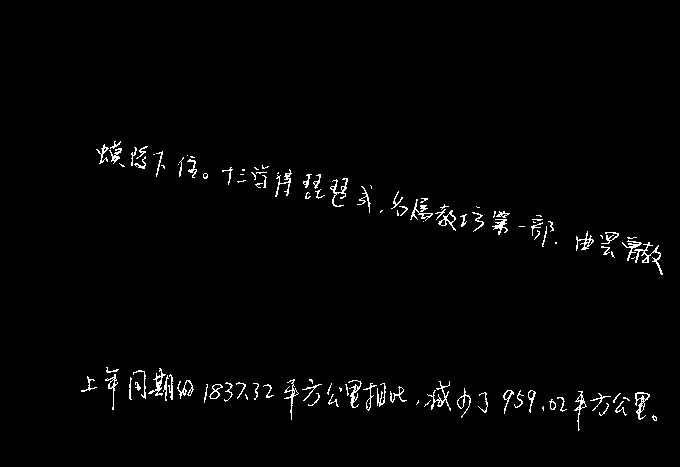 蟆陵下住。十三学得琵琶成,名属教坊第一部.曲罢曾教
上年同期的1837.32平方公里相比,减少了959.02平方公里。